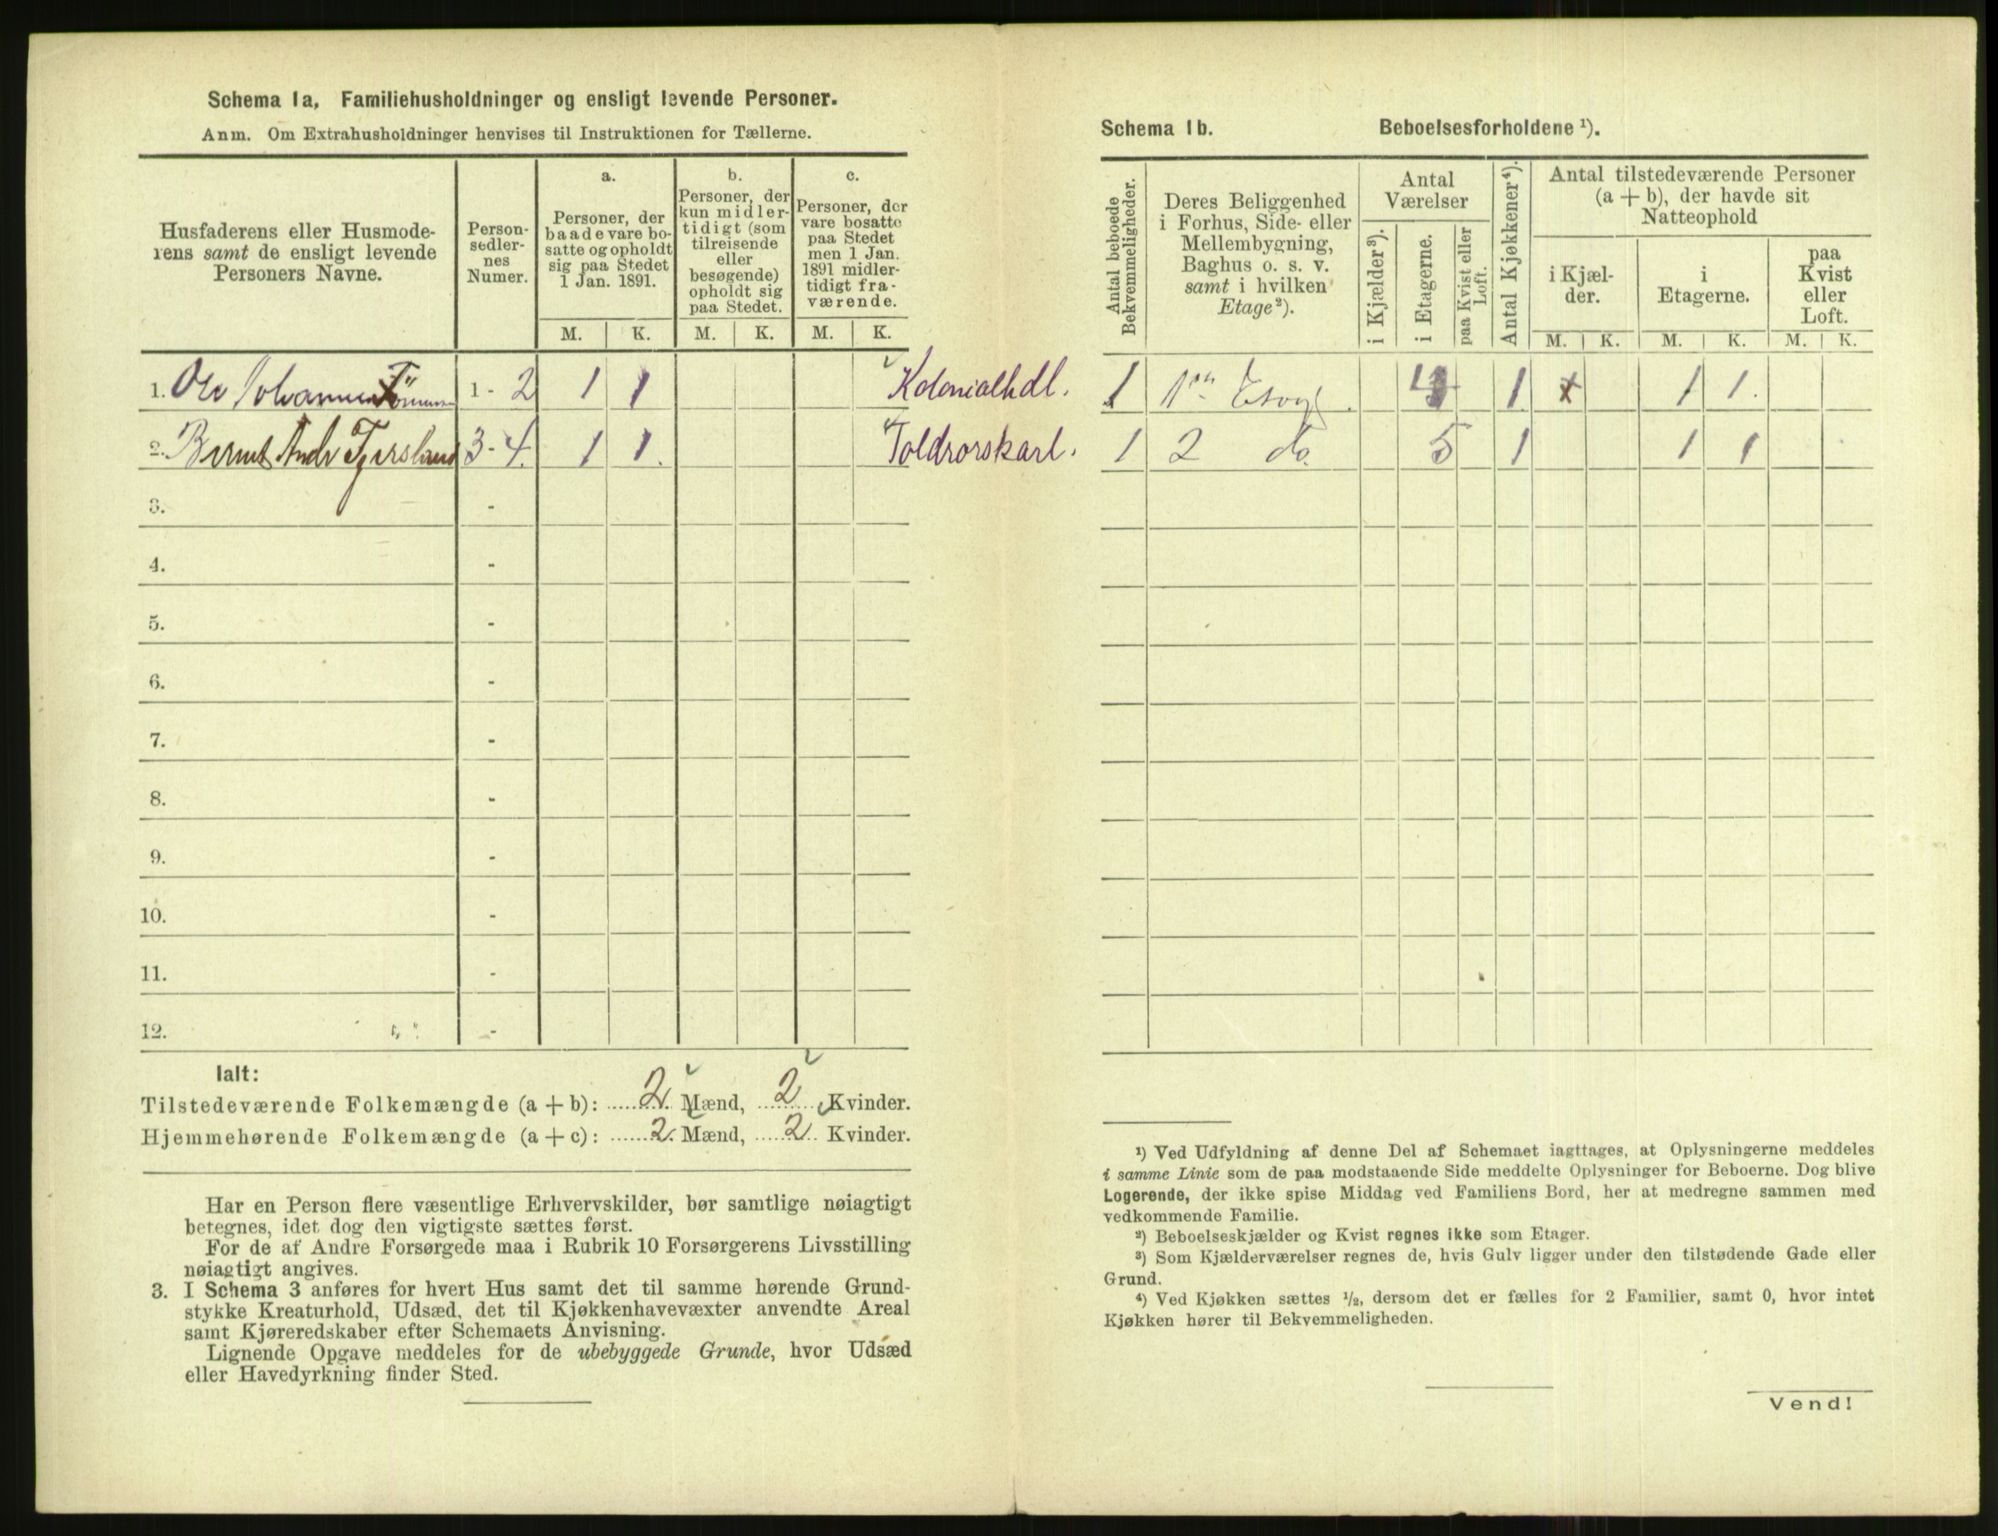 Schema 1a. Familiehusholdninger og ensligt levende Personer.
Anm. Om Extrahusholdninger henvises til Instruktionen for Tællerne.
Husfaderens eller Husmode-
rens samt de ensligt levende
Personers Navne.
Person-
sedler-
nes
Numer.
a.
Personer, der
baade vare bo-
satte og opholdt
sig paa Stedet
1 Jan. 1891.
b.
Personer, der
kun midler-
tidigt (som
tilreisende
eller
besøgende)
opholdt sig
paa Stedet.
c.
Personer, der
vare bosatte
paa Stedet
men 1 Jan.
1891 midler-
tidigt fra-
værende.
M. K. M. K. M. K.
1. Ole Johannes 1 - 2 1 1 Kolonialhdl.
2. Bernt Andr 3 - 4. 1 1. Toldrorskarl.
3. -
4. -
5. -
6. -
7. -
8. -
9. -
10. -
11. -
12. -
Ialt:
Tilstedeværende Folkemængde (a + b): 2 Mænd, 2 Kvinder.
Hjemmehørende Folkemængde (a + c): 2. Mænd, 2 Kvinder.
Har en Person flere væsentlige Erhvervskilder, bør samtlige nøiagtigt
betegnes, idet dog den vigtigste sættes først.
For de af Andre Forsørgede maa i Rubrik 10 Forsørgerens Livsstilling
nøiagtigt angives.
3. I Schema 3 anføres for hvert Hus samt det til samme hørende Grund-
stykke Kreaturhold, Udsæd, det til Kjøkkenhavevæxter anvendte Areal
samt Kjøreredskaber efter Schemaets Anvisning.
Lignende Opgave meddeles for de ubebyggede Grunde, hvor Udsæd
eller Havedyrkning finder Sted.
Schema 1b. Beboelsesforholdene ¹).
Antal beboede
Bekvemmeligheder.
Deres Beliggenhed
i Forhus, Side- eller
Mellembygning,
Baghus o. s. v.
samt i hvilken
Etage²).
Antal
Værelser
i Kjælder³).
i Etagerne.
paa Kvist eller
Loft.
Antal Kjøkkener⁴).
Antal tilstedeværende Personer
(a + b), der havde sit
Natteophold
i Kjæl-
der.
i
Etagerne.
paa
Kvist
eller
Loft.
M. K. M. K. M. K.
1 1 1 1 1.
1 2 do. 5 1 1 1
¹) Ved Udfyldning af denne Del af Schemaet iagttages, at Oplysningerne meddeles
i samme Linie som de paa modstaaende Side meddelte Oplysninger for Beboerne. Dog blive
Logerende, der ikke spise Middag ved Familiens Bord, her at medregne sammen med
vedkommende Familie.
²) Beboelseskjælder og Kvist regnes ikke som Etager.
³) Som Kjælderværelser regnes de, hvis Gulv ligger under den tilstødende Gade eller
Grund.
⁴) Ved Kjøkken sættes ½, dersom det er fælles for 2 Familier, samt 0, hvor intet
Kjøkken hører til Bekvemmeligheden.
Vend!